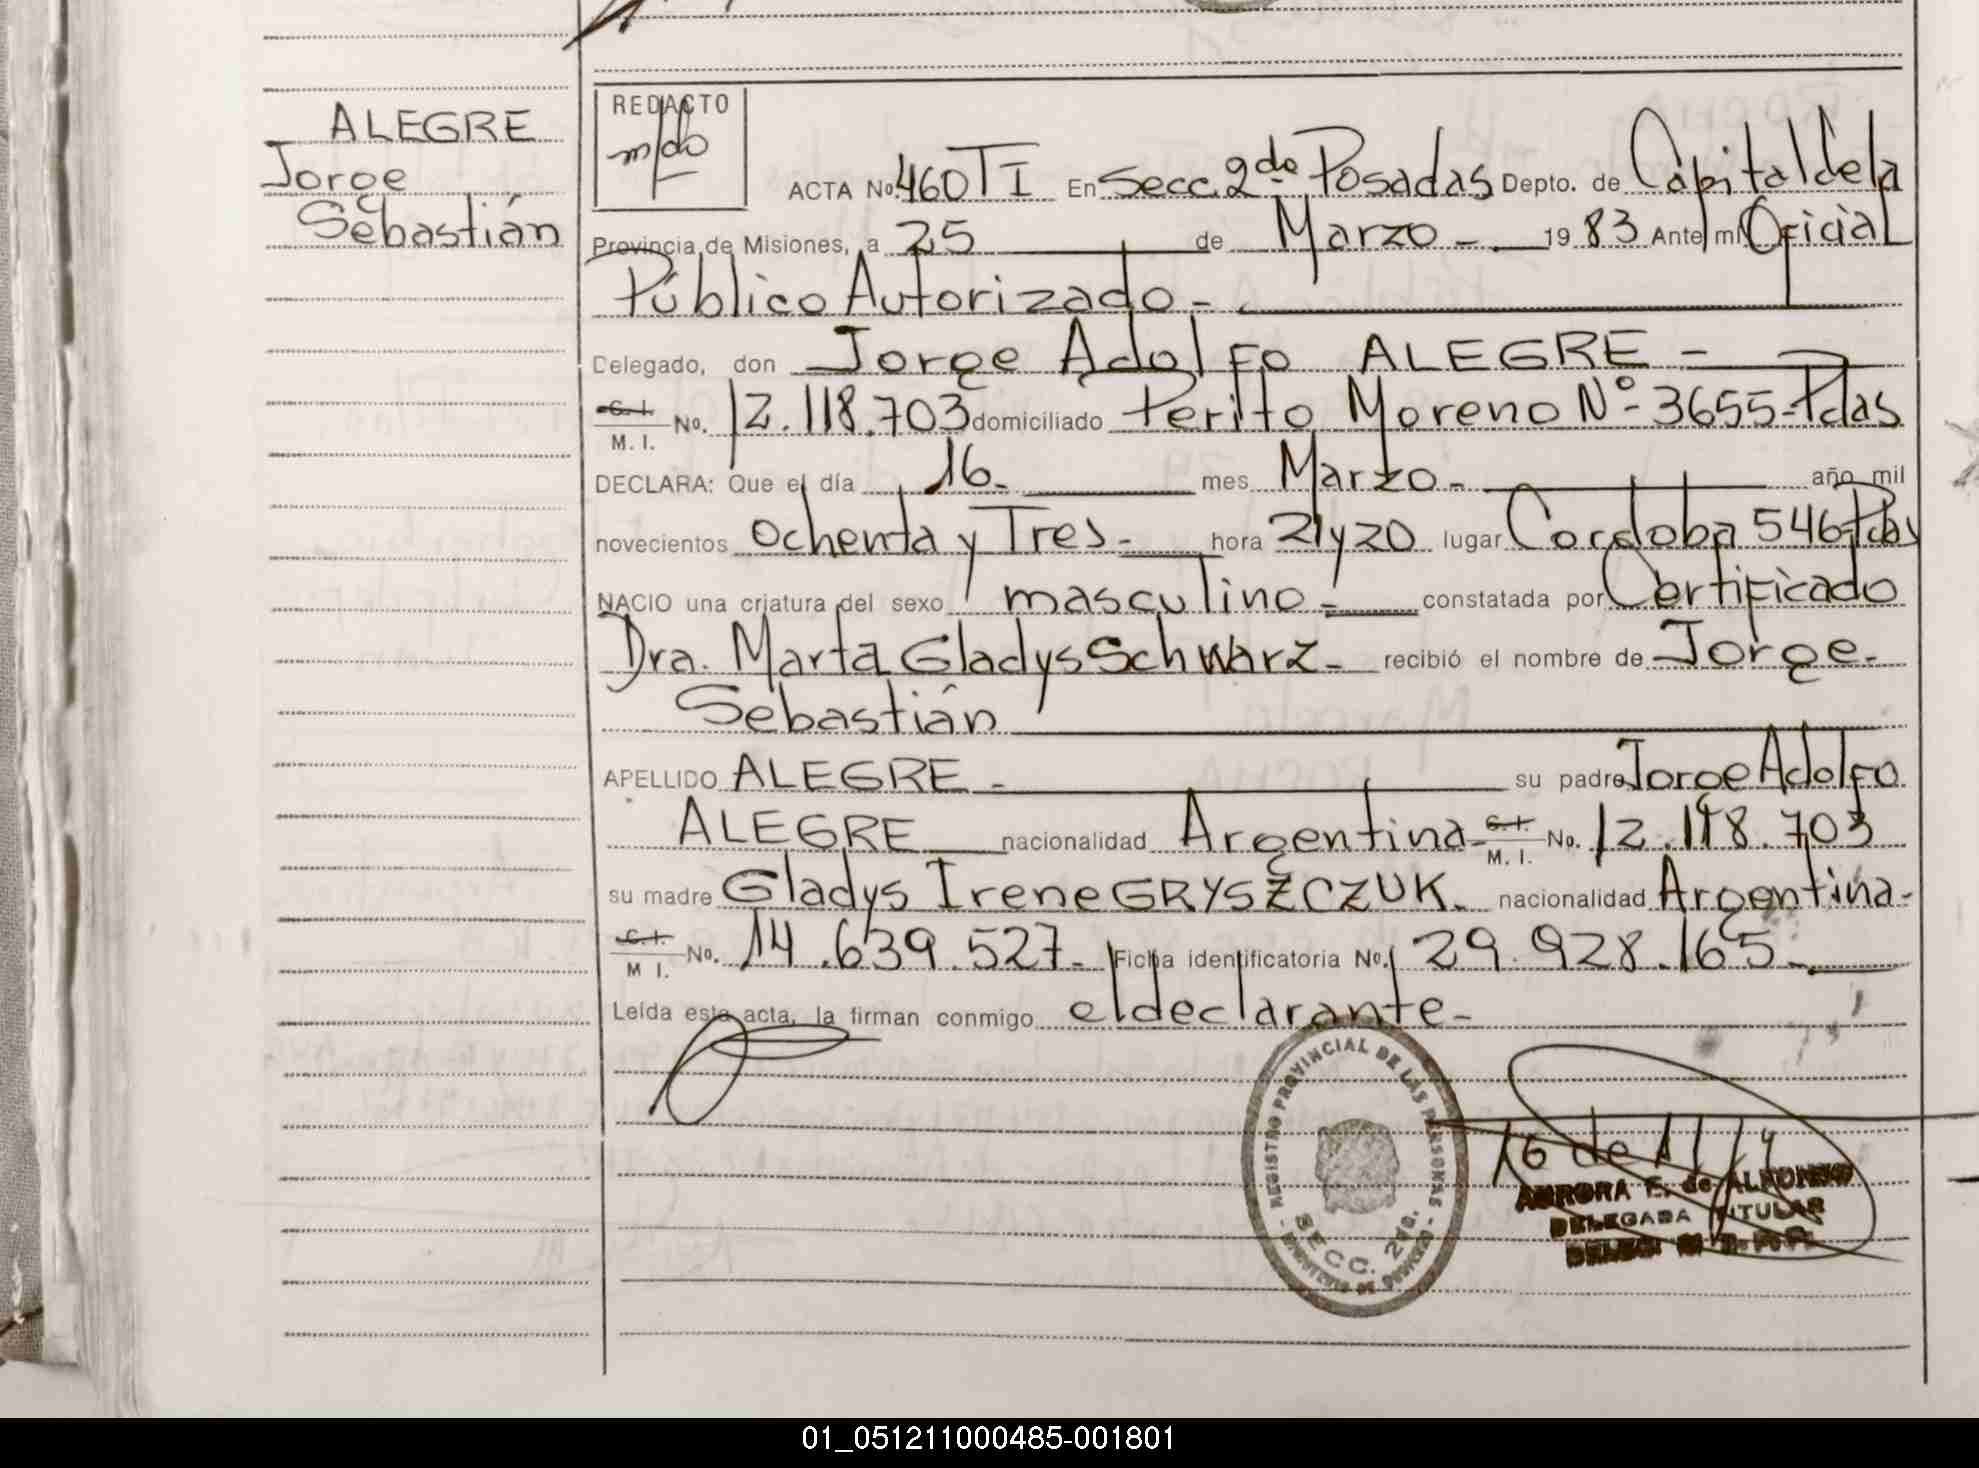 ALEGRE
Jorge
Sebastián
REDACTO
ACTA No. 460 TI En Secc. 2da Posadas Depto. de Capital de la
Provincia de Misiones, a 25 de Marzo - 19 83 Ante mí Oficial
Público Autorizado -
Delegado, don Jorge Adolfo ALEGRE -
C. I. M. I. No. 12.118.703 domiciliado Perito Moreno Nº 3655-Pdas
DECLARA: Que el día 16 - mes Marzo - año mil
novecientos ochenta y Tres - hora 21 y 20 lugar Cordoba 546-Pdas
NACIO una criatura del sexo masculino - constatada por Certificado
Dra. Marta Gladys Schwarz - recibió el nombre de Jorge -
Sebastián
APELLIDO ALEGRE - su padre Jorge Adolfo
ALEGRE nacionalidad Argentina - C. I. M. I. No. 12.118.703
su madre Gladys Irene GRYSZCZUK. nacionalidad Argentina -
C. I. M I. No. 14.639.527 - Ficha identificatoria No. 29.928.165 -
Leída esta acta, la firman conmigo el declarante -
REGISTRO PROVINCIAL DE LAS PERSONAS
SECC. 2da.
AURORA E. de ALFONSO
DELEGADA TITULAR
01_051211000485-001801